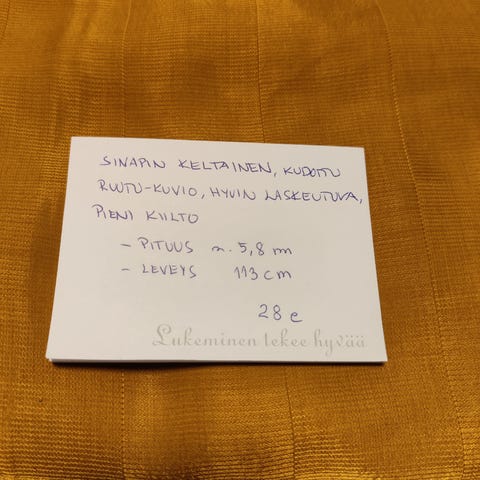 SINAPIN KELTAINEN, KUDOTTU
RUUTU-KUVIO, HYVIN LASKEUTUVA,
PIENI KIILTO
- PITUUS n. 5,8 m
- LEVEYS 113 cm
28 e
Lukeminen tekee hyvää